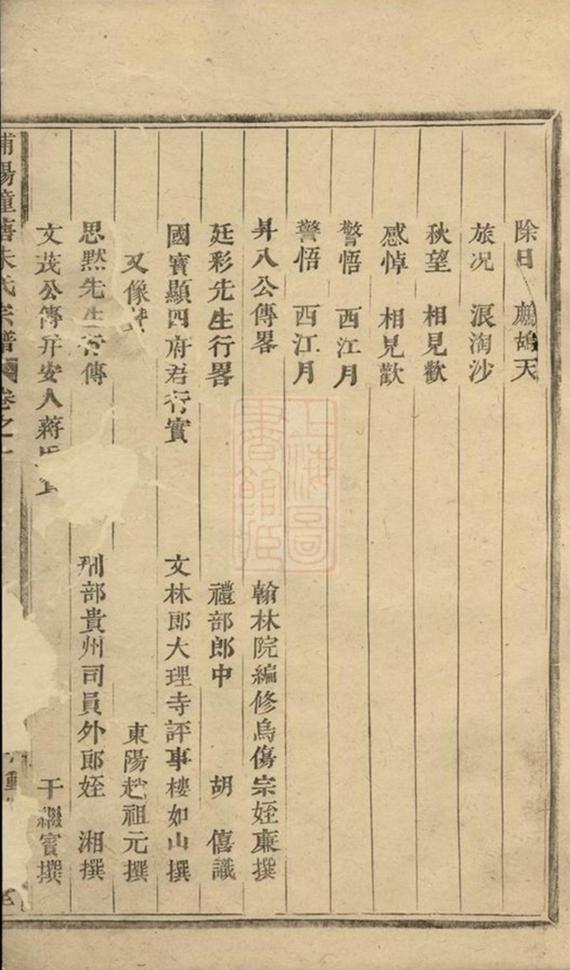 除日　鷓鴣天
旅况　浪淘沙
秋望　相見歡
感悼　相見歡
警悟　西江月
警悟　西江月
昇八公傳畧　翰林院編修烏傷宗姪廉撰
廷彩先生行畧　禮部郎中　胡　僖識
國賓顯四府君行實　文林郎大理寺評事樓如山撰
又像　東陽趙祖元撰
思默先生行傳　刑部貴州司員外郎姪　湘撰
文茂公傳并安人蔣氏　于繼賓撰
浦陽　朱氏宗譜　卷之
上海圖書館藏